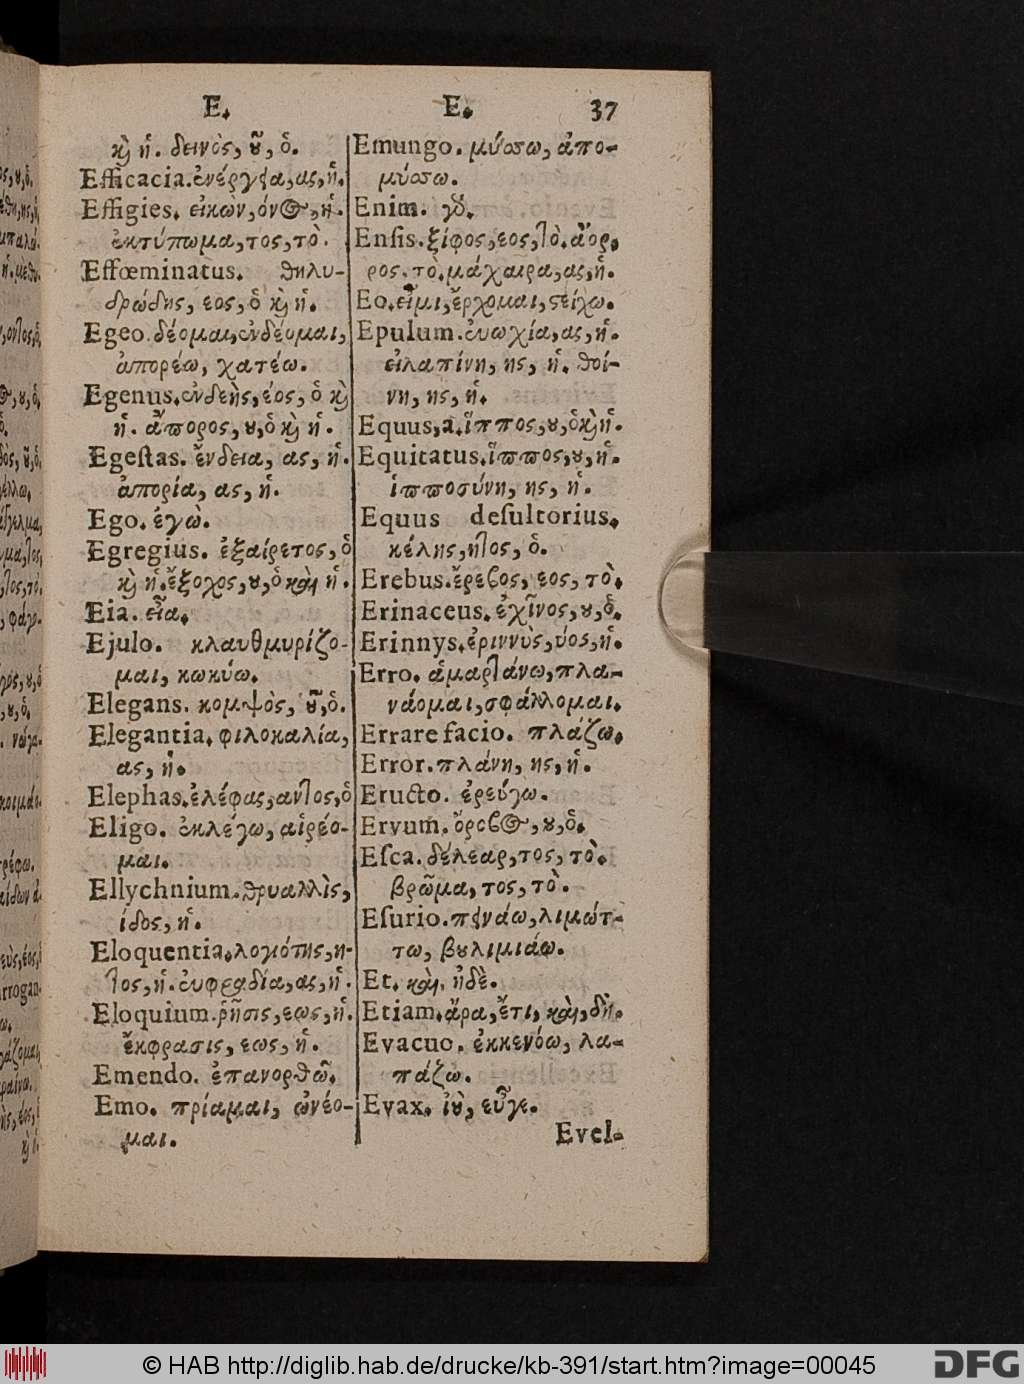 E. E. 37
κ̀ ἡ. δεινὸς, οῦ, ὁ.
Efficacia. ἐνέργεια, ας, ἡ.
Effigies. εἰκὼν, όνος, ἡ.
ἐκτύπωμα, τος, τὸ.
Effœminatus. θηλυ-
δρώδης, εος, ὁ κ̀ ἡ.
Egeo. δέομαι, ἐνδέομαι,
ἀπορέω, χατέω.
Egenus. ἐνδεὴς, έος, ὁ κ̀
ἡ. ἄπορος, ου, ὁ κ̀ ἡ.
Egeſtas. ἔνδεια, ας, ἡ.
ἀπορία, ας, ἡ.
Ego. ἐγὼ.
Egregius. ἐξαίρετος, ὁ
κ̀ ἡ. ἔξοχος, ου, ὁ καὶ ἡ.
Eia. εἶα.
Ejulo. κλαυθμυρίζο-
μαι, κωκύω.
Elegans. κομψὸς, οῦ, ὁ.
Elegantia. φιλοκαλία,
ας, ἡ.
Elephas. ἐλέφας, αντος, ὁ
Eligo. ἐκλέγω, αἱρέο-
μαι.
Ellychnium. θρυαλλὶς,
ίδος, ἡ.
Eloquentia. λογιότης, η-
τος, ἡ. εὐφραδία, ας, ἡ.
Eloquium. ῥῆσις, εως, ἡ.
ἔκφρασις, εως, ἡ.
Emendo. ἐπανορθῶ.
Emo. πρίαμαι, ὠνέο-
μαι.
Emungo. μύσσω, ἀπο-
μύσσω.
Enim. γὸ.
Enſis. ξίφος, εος, τὸ. ἄορ,
ρος. τὸ. μάχαιρα, ας, ἡ.
Eo. εἶμι, ἔρχομαι, ϛείχω.
Epulum. εὐωχία, ας, ἡ.
εἰλαπίνη, ης, ἡ. θοί-
νη, ης, ἡ.
Equus, a. ἵππος, ου, ὁ κ̀ ἡ.
Equitatus. ἵππος, ου, ἡ.
ἱπποσύνη, ης, ἡ.
Equus deſultorius.
κέλης, ητος, ὁ.
Erebus. ἔρεβος, εος, τὸ.
Erinaceus. ἐχῖνος, ου, ὁ.
Erinnys. ἐριννὺς, ύος, ἡ.
Erro. ἁμαρτάνω, πλα-
νάομαι, σφάλλομαι.
Errare facio. πλάζω.
Error. πλάνη, ης, ἡ.
Eructo. ἐρεύγω.
Ervum. ὄροβος, ου, ὁ.
Eſca. δέλεαρ, τος, τὸ.
βρῶμα, τος, τὸ.
Eſurio. πεινάω, λιμώτ-
τω, βουλιμιάω.
Et. καὶ, ἠδὲ.
Etiam. ἄρα, ἔτι, καὶ, δὴ.
Evacuo. ἐκκενόω, λα-
πάζω.
Evax. ἰοὺ, εὖγε.
Evel-
© HAB http://diglib.hab.de/drucke/kb-391/start.htm?image=00045
DFG